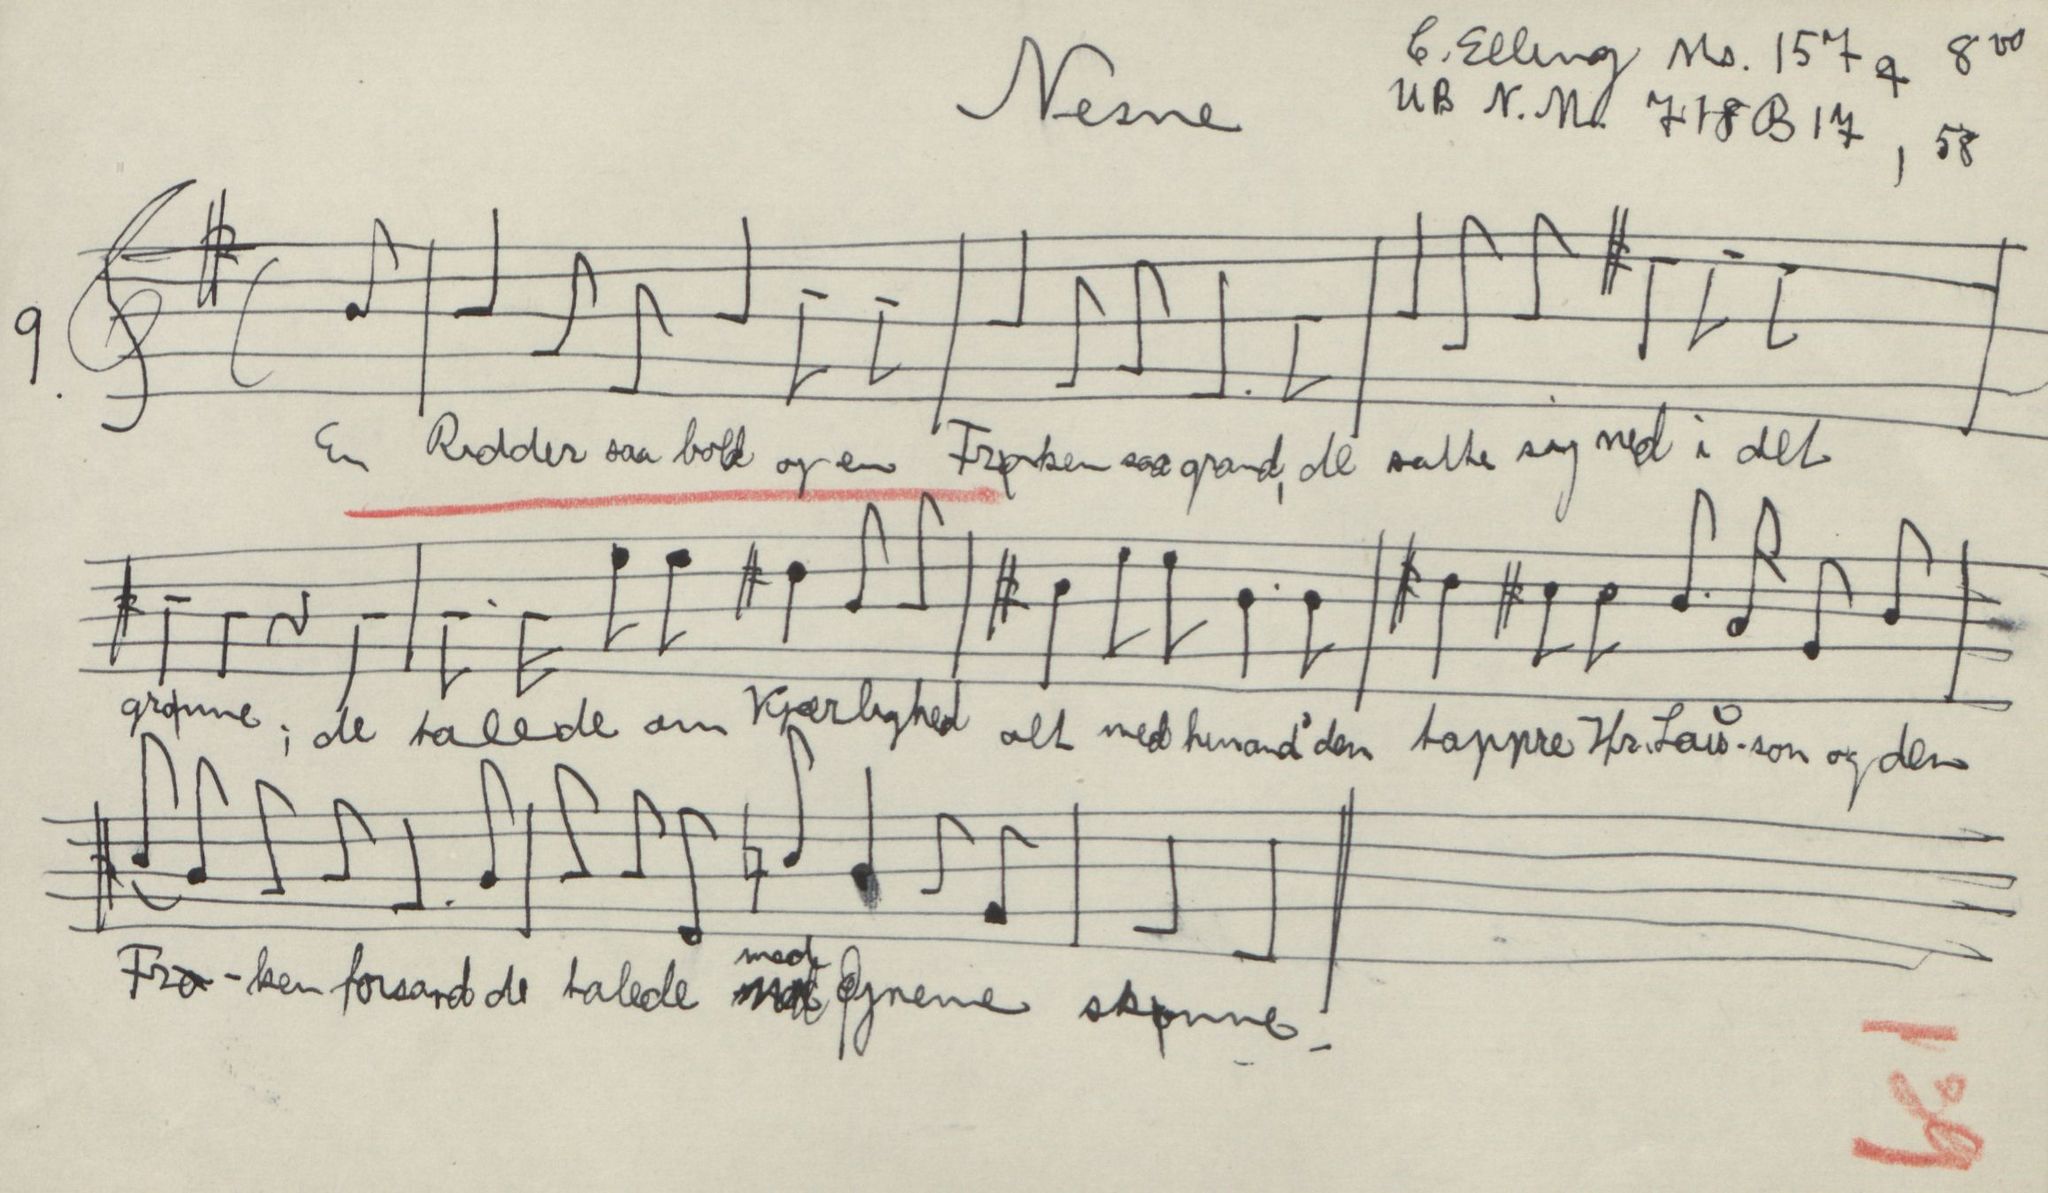 Nesne
C. Elling Ms. 157 4 8vo
UB N. Ms. 718 B 17, 58
9.
En Ridder saa bold og en Frøken saa grand, de satte sig ned i det
grønne; de talede om Kjærlighed alt med hinand' den tappre Hr. Lav-son og den
Frø-ken forsand de talede med Øjnene skønne.